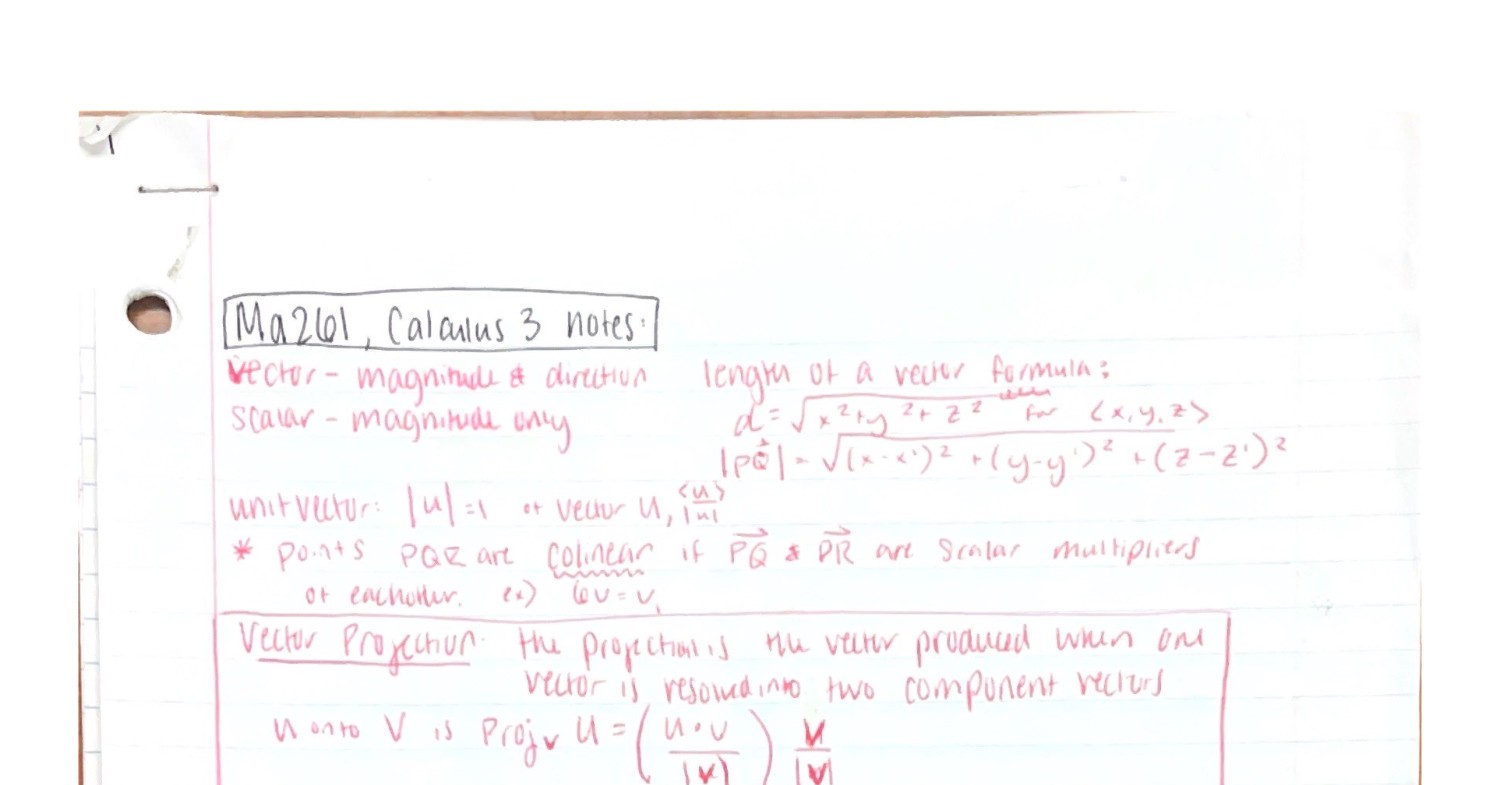 Ma261, Calculus 3 notes:
vector - magnitude & direction
scalar - magnitude only
length of a vector formula:
d = √(x² + y² + z²) for <x, y, z>
|PQ⃗| = √((x-x')² + (y-y')² + (z-z')²)
unit vector: |u| = 1 of vector u, <u>/|u|
* points PQR are colinear if PQ⃗ & PR⃗ are scalar multipliers
of eachother. ex) 6v = v,
Vector Projection: the projection is the vector produced when one
vector is resolved into two component vectors
u onto v is Projᵥ u = (u · v / |v|) v / |v|